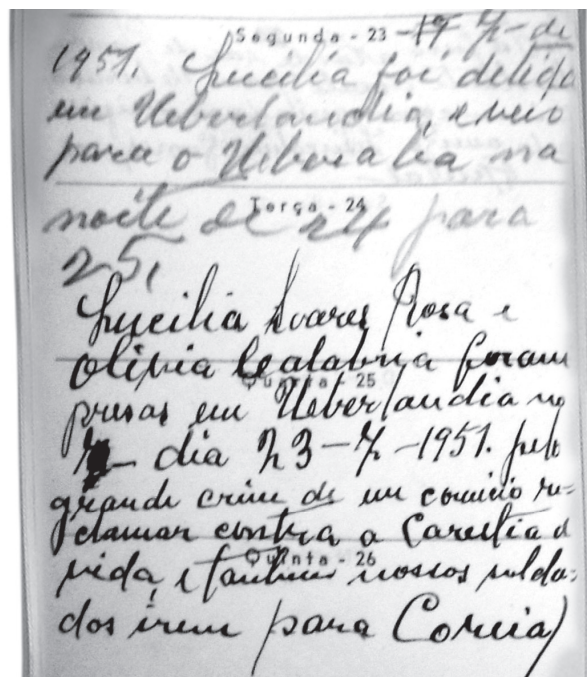 Segunda - 23 - 19 7 - de
1951. Lucilia foi detida
em Ueberlandia, e veio
para o Uberaba na
Terça - 24
noite de 24 para
25,
Lucilia Soares Rosa e
Olivia Calabria foram
Quarta - 25
presas em Ueberlandia no
dia 23-7-1951. pelo
grande crime de um comicio re-
clamar contra a Carestia d
Quinta - 26
vida, e tambem nossos solda-
dos irem para Coreia)